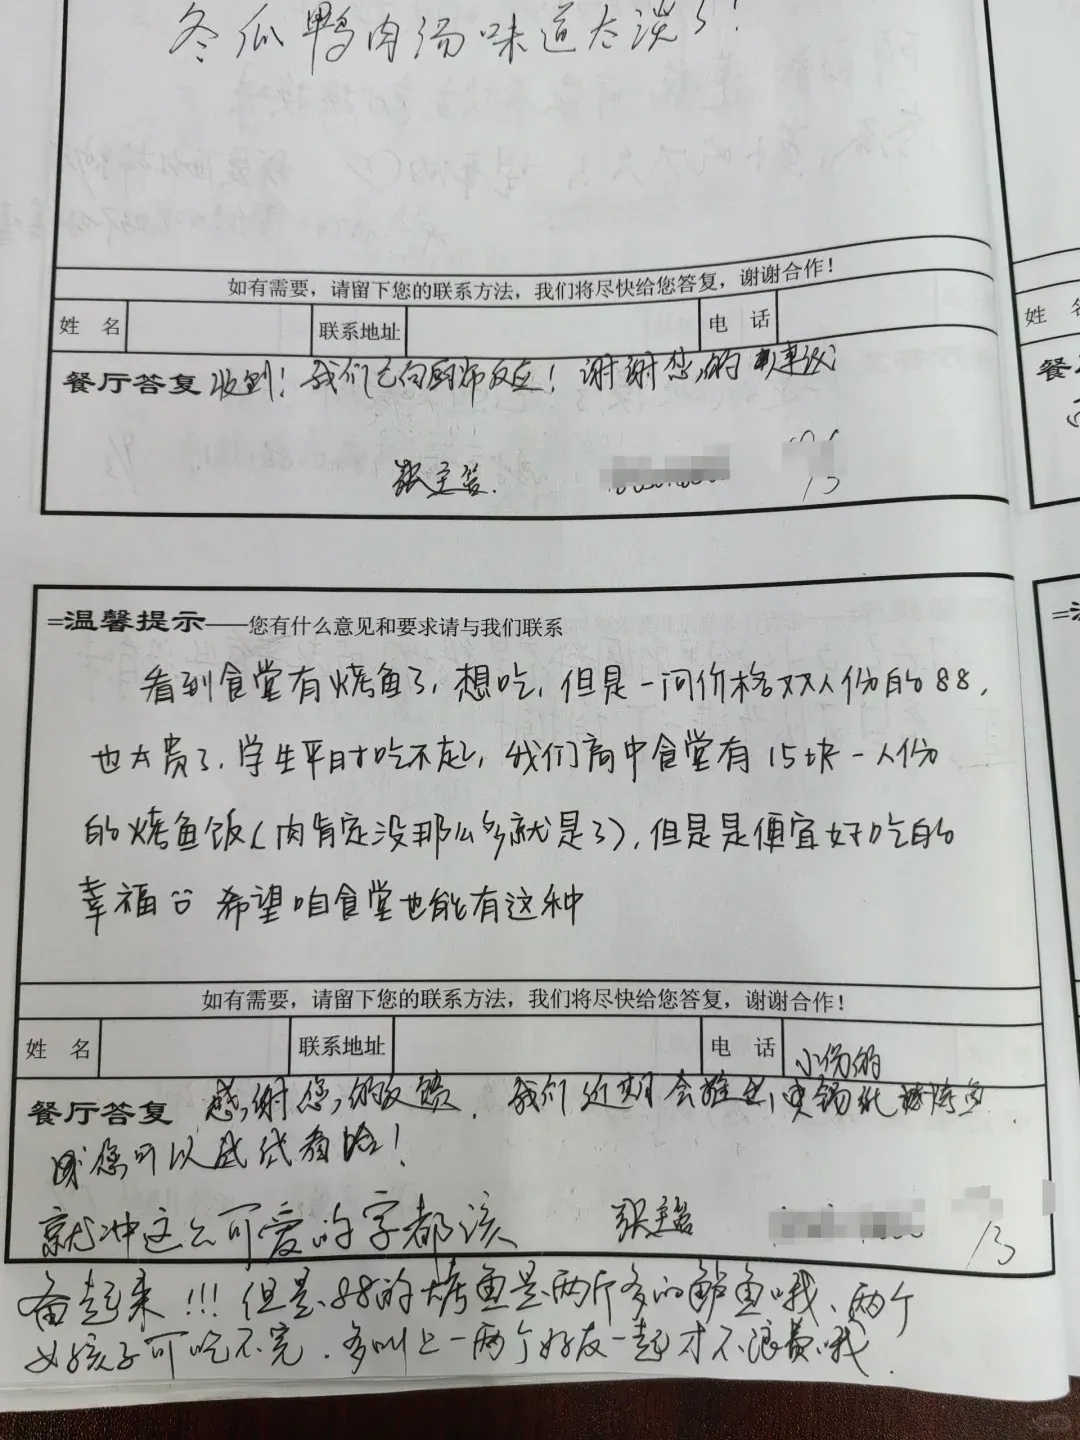 冬瓜鸭肉汤味道太淡了!
如有需要，请留下您的联系方法，我们将尽快给您答复，谢谢合作！
姓 名 联系地址 电 话
姓 名
餐厅答复 收到! 我们已向厨师反应! 谢谢您的
张主管.
=温馨提示——您有什么意见和要求请与我们联系
看到食堂有烤鱼了, 想吃, 但是一问价格双人份的88,
也太贵了. 学生平时吃不起, 我们高中食堂有15块一人份
的烤鱼饭(肉肯定没那么多就是了), 但是是便宜好吃的
幸福 希望咱食堂也能有这种
如有需要，请留下您的联系方法，我们将尽快给您答复，谢谢合作！
姓 名 联系地址 电 话
小份的
餐厅答复 感谢您的反馈. 我们近期会推出 锡纸 烤鱼
您可以试试看哈!
就冲这么可爱的字都该
张主管
奋起来!!! 但是88的烤鱼是两斤多的鲈鱼哦、两个
女孩子可吃不完. 多叫上一两个好友一起才不浪费哦.